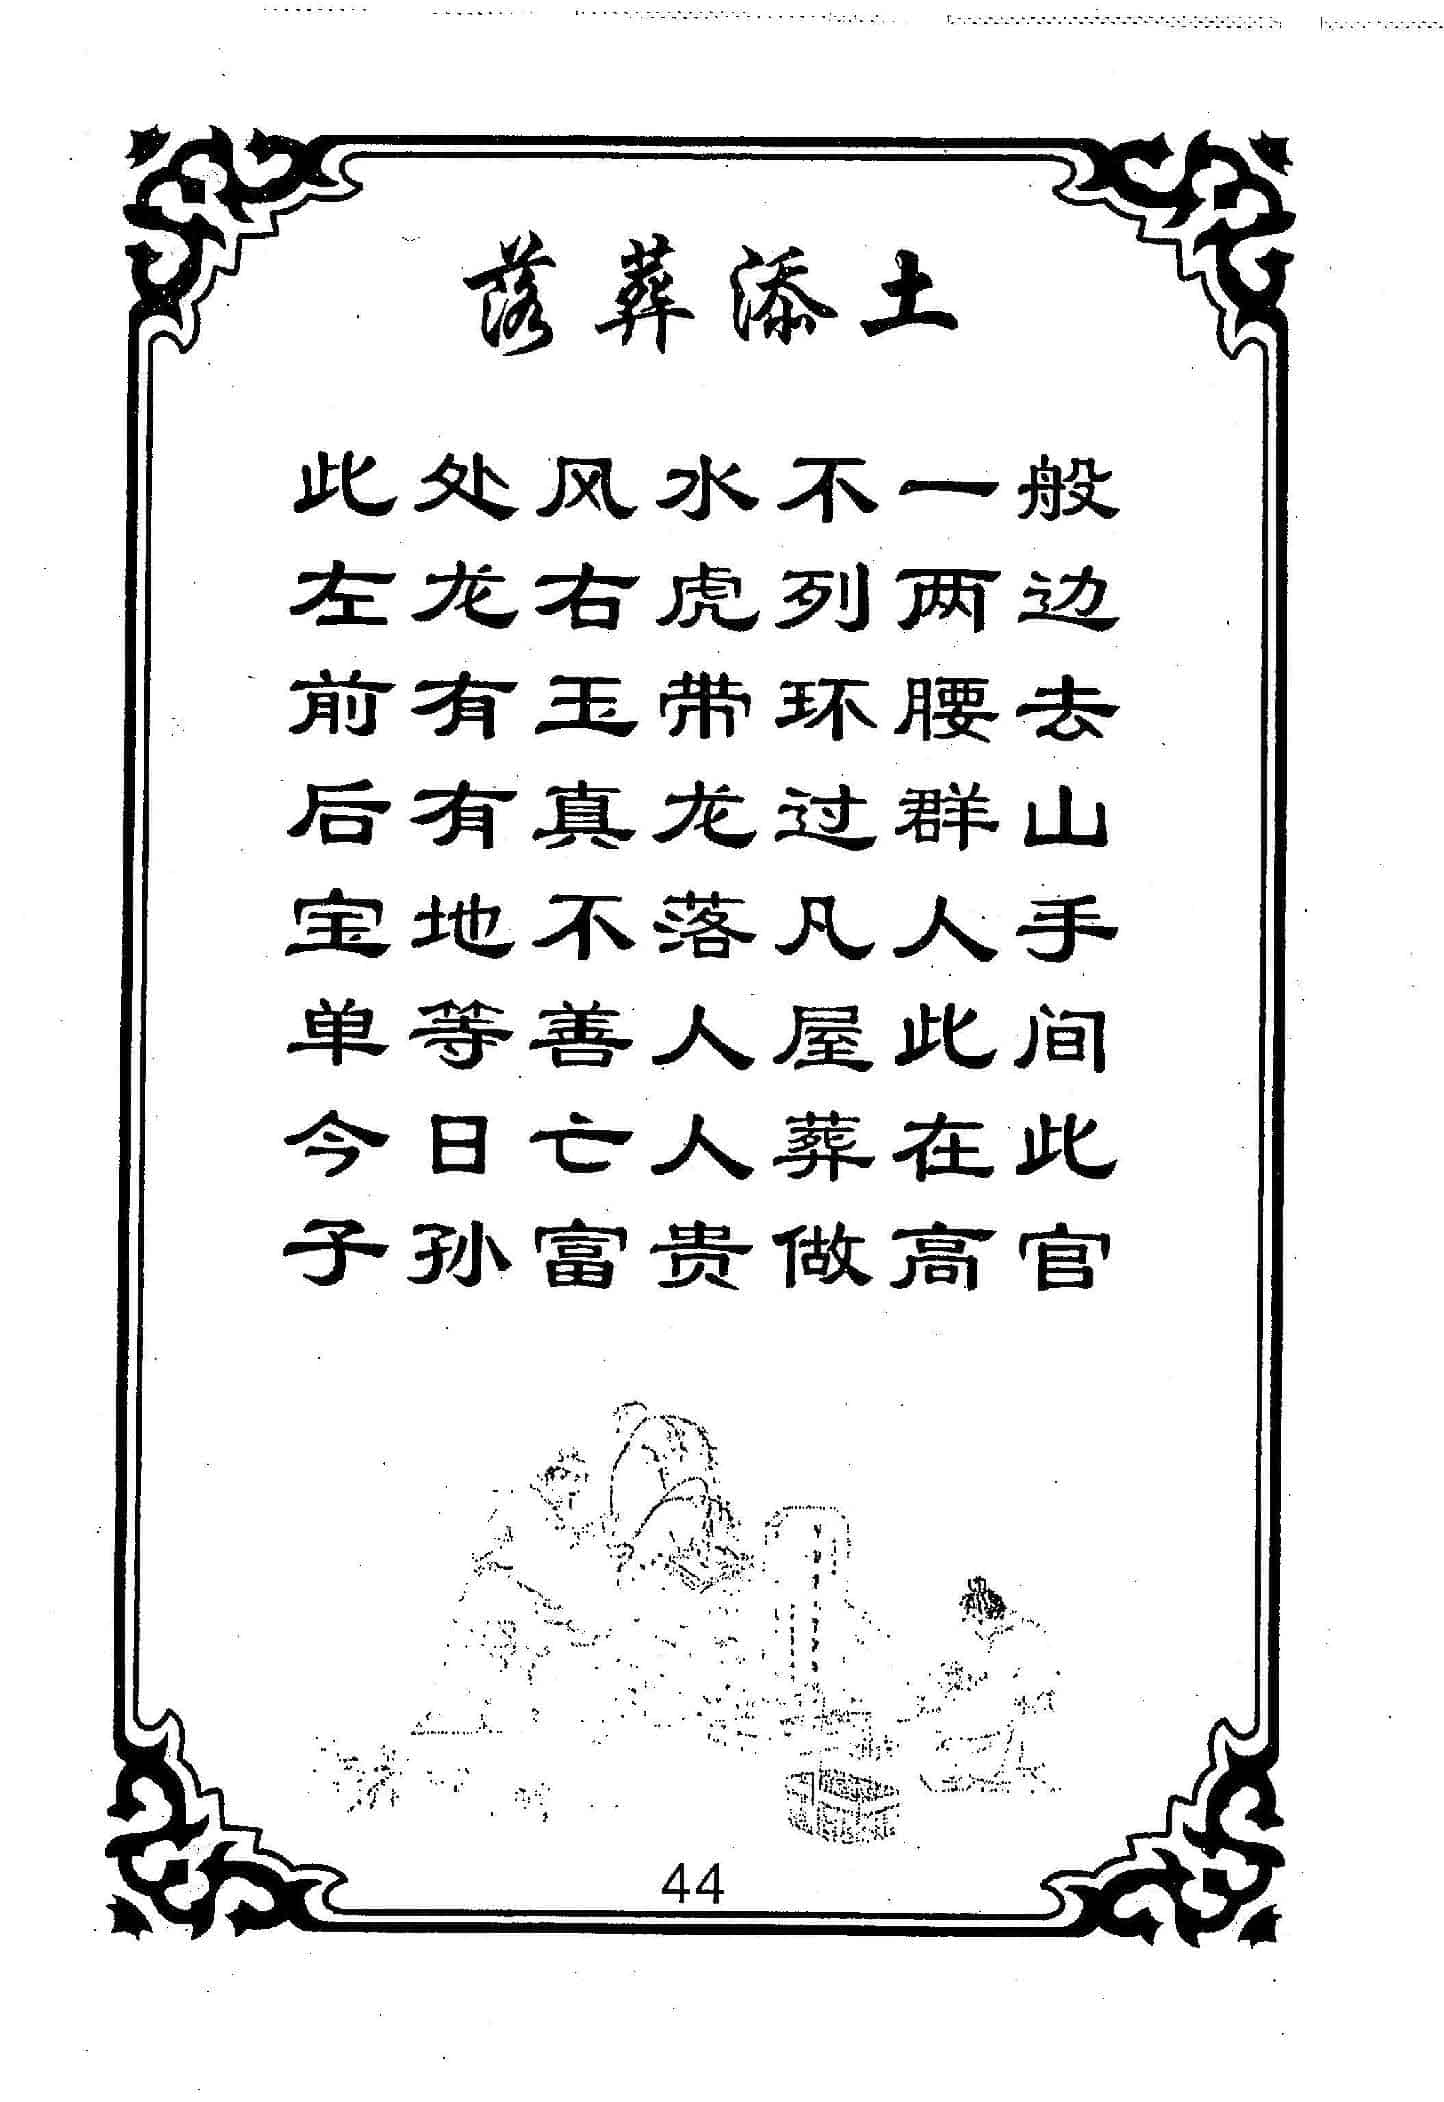 落葬添土
此处风水不一般
左龙右虎列两边
前有玉带环腰去
后有真龙过群山
宝地不落凡人手
单等善人屋此间
今日亡人葬在此
子孙富贵做高官
44